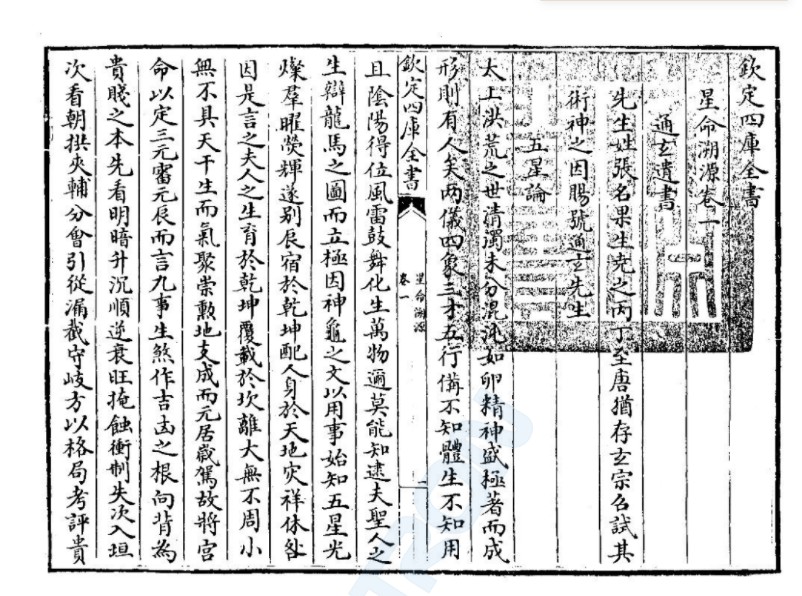 欽定四庫全書
星命溯源卷一
通玄遺書
先生姓張名果生堯之丙丁至唐猶存玄宗召試其
術神之因賜號通玄先生
五星論
太上洪荒之世清濁未分混沌如卵精神盛極著而成
形則有人矣兩儀四象三才五行備不知體生不知用
欽定四庫全書
星命溯源
卷一
一
且陰陽得位風雷鼓舞化生萬物邇莫能知逮夫聖人之
生辯龍馬之圖而立極因神龜之文以用事始知五星光
燦羣曜熒輝遂别辰宿於乾坤配人身於天地灾祥休咎
因是言之夫人之生育於乾坤覆載於坎離大無不周小
無不具天干生而氣聚崇勲地支成而元居歲駕故將宫
命以定三元審元辰而言九事生煞作吉凶之根向背為
貴賤之本先看明暗升沉順逆衰旺掩蝕衝制失次入垣
次看朝拱夾輔分會引從漏截守岐方以格局考評貴